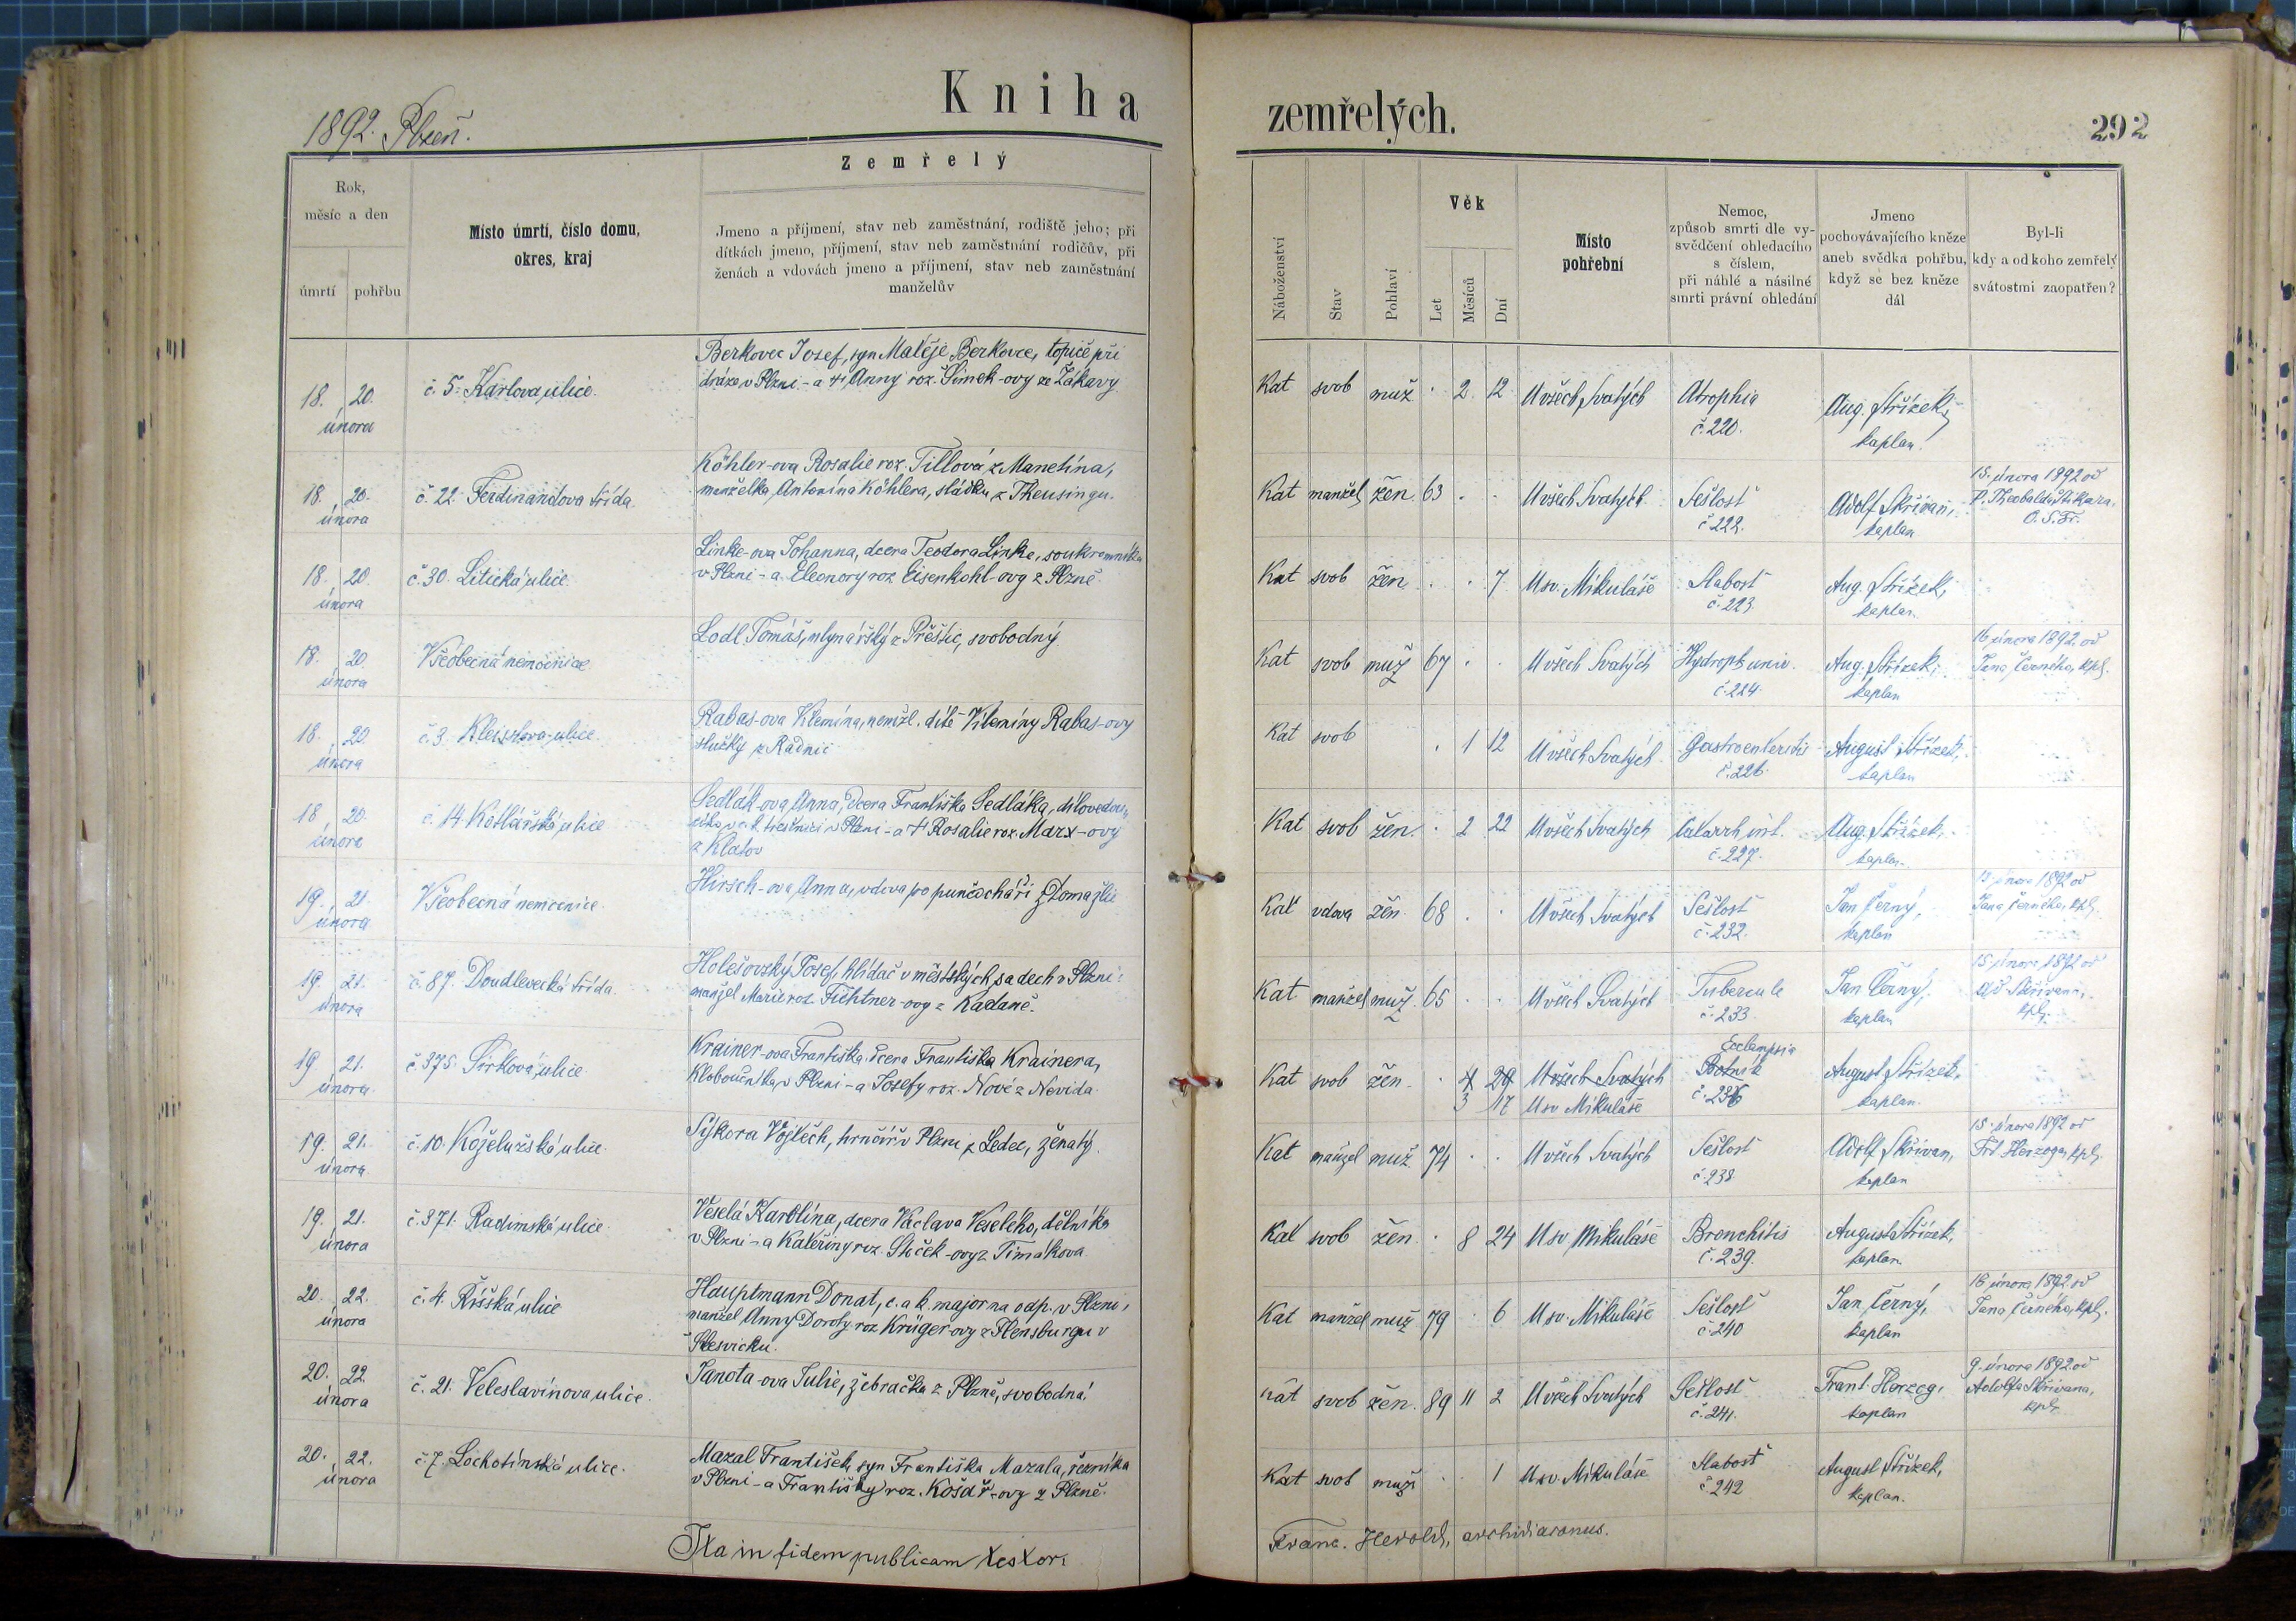 Kniha
zemřelých.
1892. Plzeň.
292
Zemřelý
Rok,
měsíc a den
úmrtí
pohřbu
Místo úmrtí, číslo domu,
okres, kraj
Jmeno a příjmení, stav neb zaměstnání, rodiště jeho; při
dítkách jmeno, příjmení, stav neb zaměstnání rodičův, při
ženách a vdovách jmeno a příjmení, stav neb zaměstnání
manželův
Náboženství
Stav
Pohlaví
Věk
Let
Měsíců
Dní
Místo
pohřební
Nemoc,
způsob smrti dle vy-
svědčení ohledacího
s číslem,
při náhlé a násilné
smrti právní ohledání
Jmeno
pochovávajícího kněze
aneb svědka pohřbu,
když se bez kněze
dál
Byl-li
kdy a od koho zemřelý
svátostmi zaopatřen?
Berkovec Josef, syn Matěje Berkovce, topiče při
18. 20. č. 5. Karlova ulice. dráze v Plzni - a † Anny roz. Šimek-ovy ze Žákavy
února
Kat svob muž . 2 12 U všech Svatých Atrophia Aug. Střízek,
č. 220. kaplan.
Köhler-ova Rosalie roz. Tillová z Manetína,
18. 20. č. 22. Ferdinandova třída. manželka Antonína Köhlera, sládka z Theusingu.
února
15. února 1892 od
Kat manžel žen 63 . . U všech Svatých Sešlost Adolf Skřivan, P. Theobalda
č. 222. kaplan O. S. Fr.
Linke-ova Johanna, dcera Teodora Linke, soukromníka
18. 20. č. 30. Litická ulice. v Plzni - a Eleonory roz Eisenkohl-ovy z Plzně.
února
Kat svob žen . . 7 U sv. Mikuláše Slabost Aug. Střízek,
č. 223. kaplan.
Lodl Tomáš, mlynářský z Přeštic, svobodný
18. 20. Všeobecná nemocnice
února
16 února 1892. od
Kat svob muž 67 . . U všech Svatých Hydrops univ. Aug. Střízek, Jana Černého, kpl.
č. 224. kaplan
Rabas-ova Vilemína, nemžl. dítě Vilemíny Rabas-ovy
18. 20. č. 3. Kleisslova ulice. služky z Radnic
února
Kat svob . 1 12 U všech Svatých Gastroenteritis August Střízek,
č. 226. kaplan
Sedlák-ova Anna, dcera Františka Sedláka,
18. 20. č. 14 Kotlářská ulice v Plzni - a † Rosalie roz. Marx-ovy
února z Klatov
Kat svob žen . 2 22 U všech Svatých Catarrh int. Aug. Střízek,
č. 227. kaplan.
Hirsch-ova Anna, vdova po punčocháři z Domažlic
19. 21. Všeobecná nemocnice.
února
1892 od
Kat vdova žen. 68 . . U všech Svatých Sešlost Jan Černý, Jana Černého, kpl.
č. 232. kaplan
Holešovzký Josef, hlídač v městských sadech v Plzni
19. 21. č. 87. Doudlevecká třída. manžel Marie roz Fichtner-ovy z Kadaně.
února
15 února 1892 od
Kat manžel muž 65 . . U všech Svatých Tubercule Jan Černý, Ad. Skřivana,
č. 233. kaplan kpl.
Krainer-ova Františka dcera Františka Krainera,
19 21. č. 375. Sirková ulice. Kloboučníka v Plzni - a Josefy roz. Nové z Nevida.
února
Ecclampsia
Kat svob žen . 4 29 U všech Svatých Psotník August Střízek,
3 17 U sv Mikuláše č. 236 kaplan.
Sýkora Vojtěch, hrnčíř v Plzni z Ledec, ženatý.
19. 21. č. 10. Koželužská ulice.
února
15. února 1892 od
Kat manžel muž. 74 . . U všech Svatých Sešlost Adolf Skřivan, Frt Herzoga, kpl.
č. 238. kaplan
Veselá Karolína, dcera Václava Veselého, dělníka
19. 21. č. 371. Radimská ulice. v Plzni - a Kateřiny roz. Sloček-ovy z Timákova
února
Kat svob žen . 8 24 U sv. Mikuláše Bronchitis August Střízek,
č. 239. kaplan.
Hauptmann Donat, c. a k. major na odp. v Plzni,
20. 22. č. 4. Říšská ulice manžel Anny Doroty roz Krüger-ovy z Flensburgu v
února Šlesvicku.
16 února 1892. od
Kat manžel muž 79 . 6 U sv. Mikuláše Sešlost Jan Černý, Jana Černého, kpl.
č. 240 kaplan
Janota-ova Julie, žebračka z Plzně, svobodná
20. 22. č. 21. Veleslavínova ulice.
února
9. února 1892 od
Kat svob žen. 89 11 2 U všech Svatých Sešlost Frant. Herzog, Adolfa Skřivana,
č. 241. kaplan kpl.
Mazal František, syn Františka Mazala, řezníka
20. 22. č. 7. Lochotínská ulice. v Plzni - a Františky roz. Košař-ovy z Plzně.
února
Kat svob muž . . 1 U sv. Mikuláše Slabost August Střízek,
č. 242 kaplan.
Ita in fidem publicam testor:
Franc. Herold, archidiaconus.